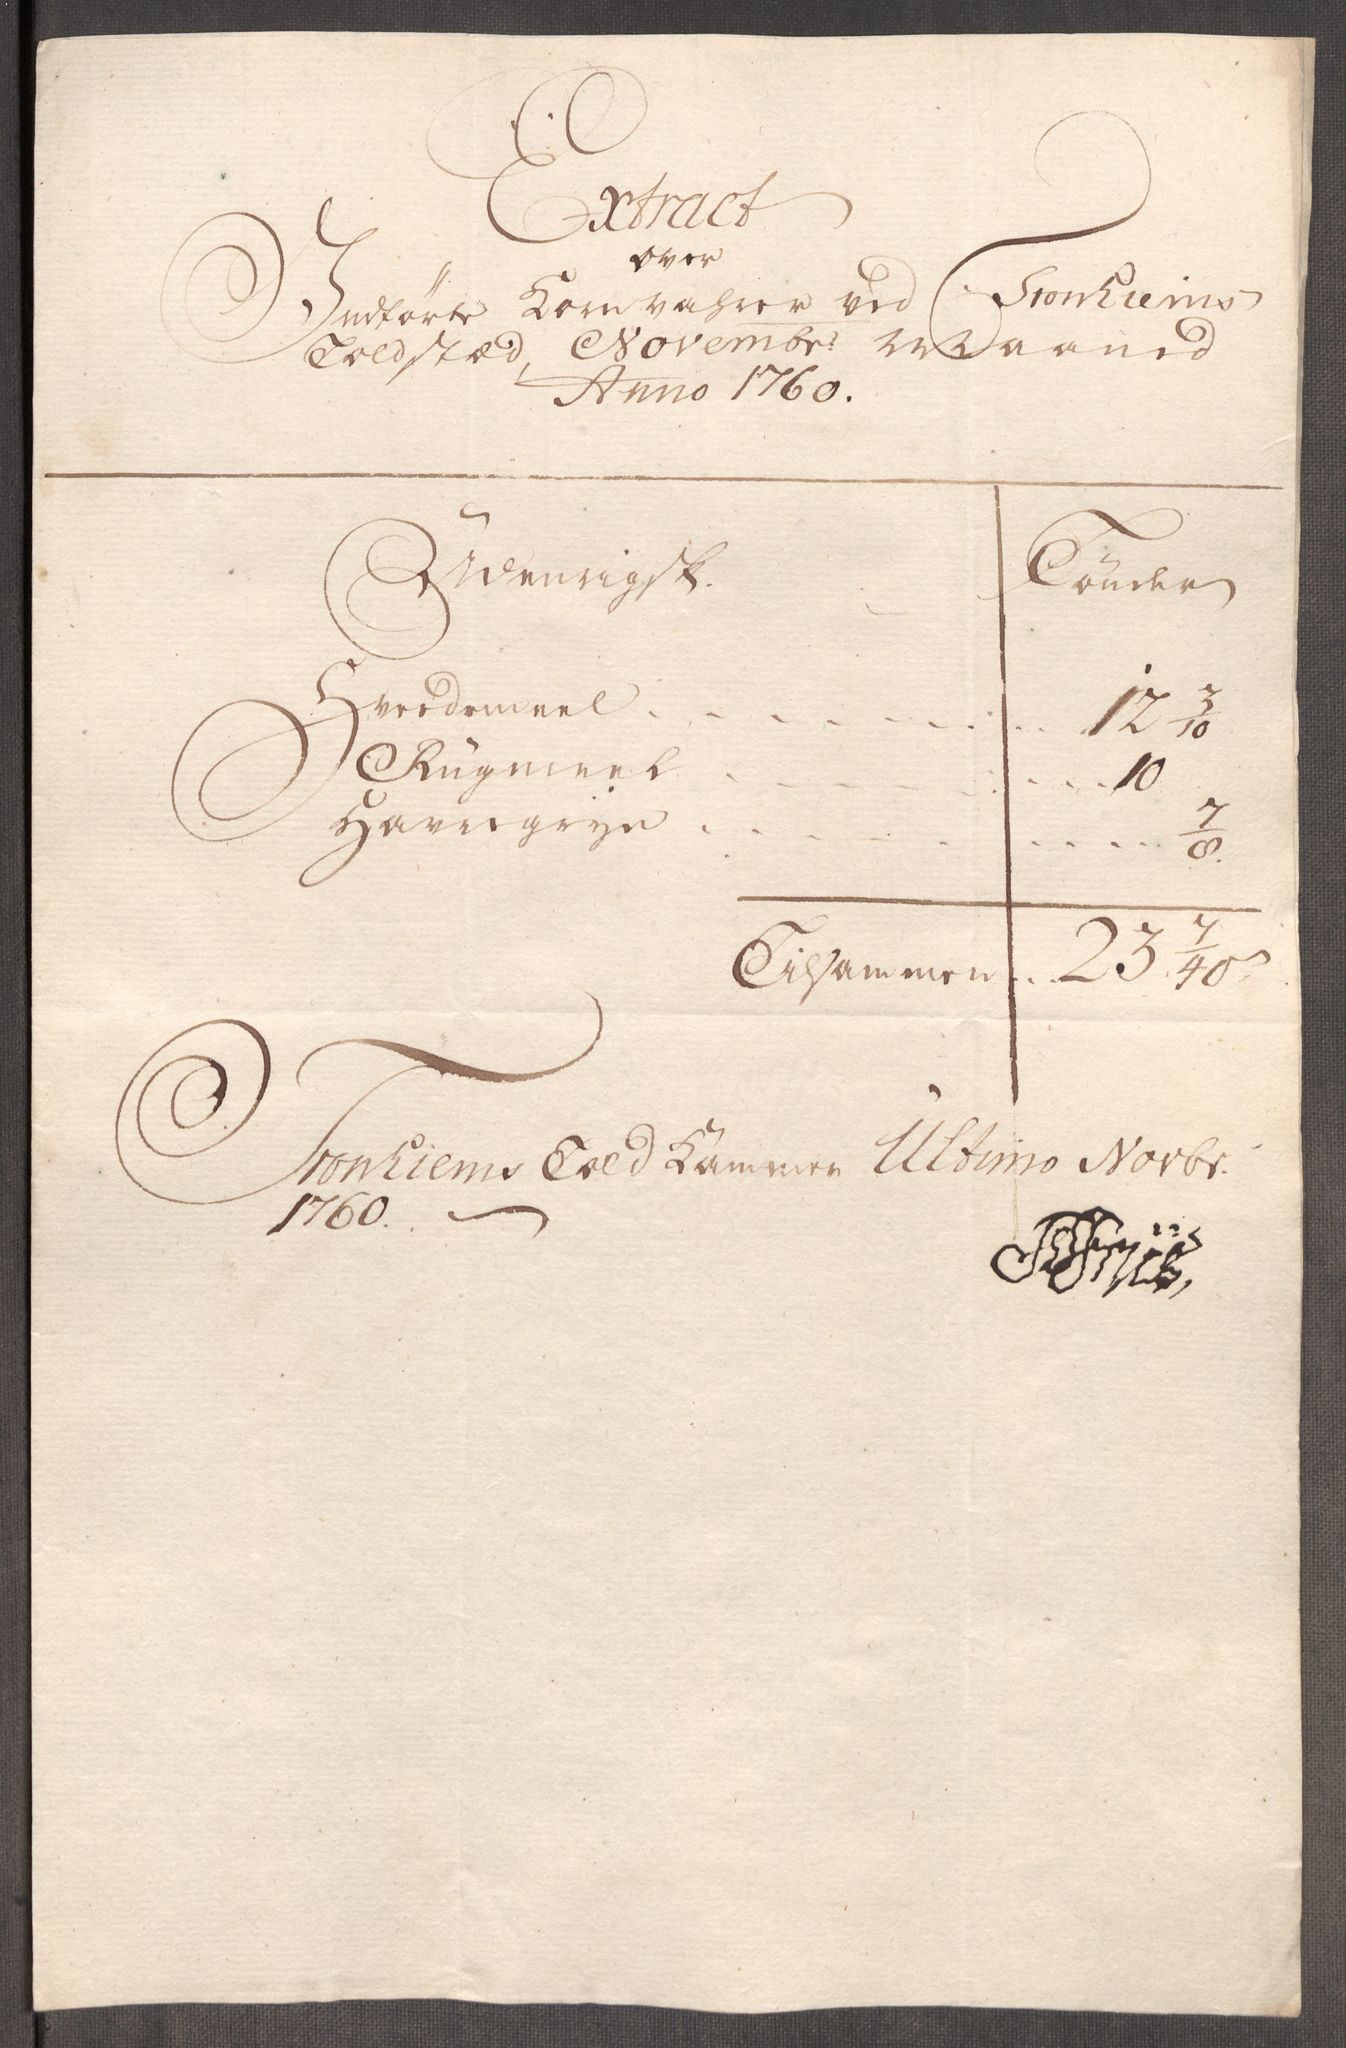 Extract
over
Indførte Kornvahrer ved Tronhiems
Toldstæd, Novembr: Maaned
Anno 1760.
Udenrigsk. Tønder
Hveedemeel . . . . . . . . . 12 3/10
Rügmeel . . . . . . . . . 10
Havregryn . . . . . . . . . 7/8.
Tilsammen . . 23 7/40
Tronhiems Told Kammer Ultimo Novbr.
1760.